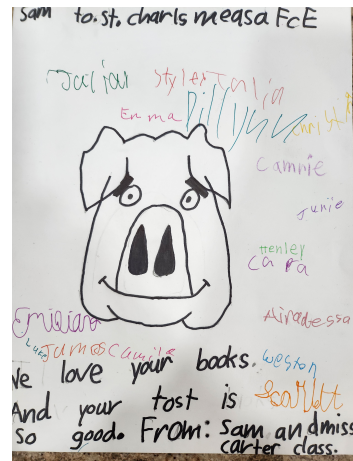 Sam to.st.charls measa FcE
Julian Styler Talia
Emma Dillynn
Camnie
Junie
Henley
Cara
Emiliana
Luca James Camila
We love your books. weston
And your tost is Scarlett
so good. From: Sam and miss
carter class.